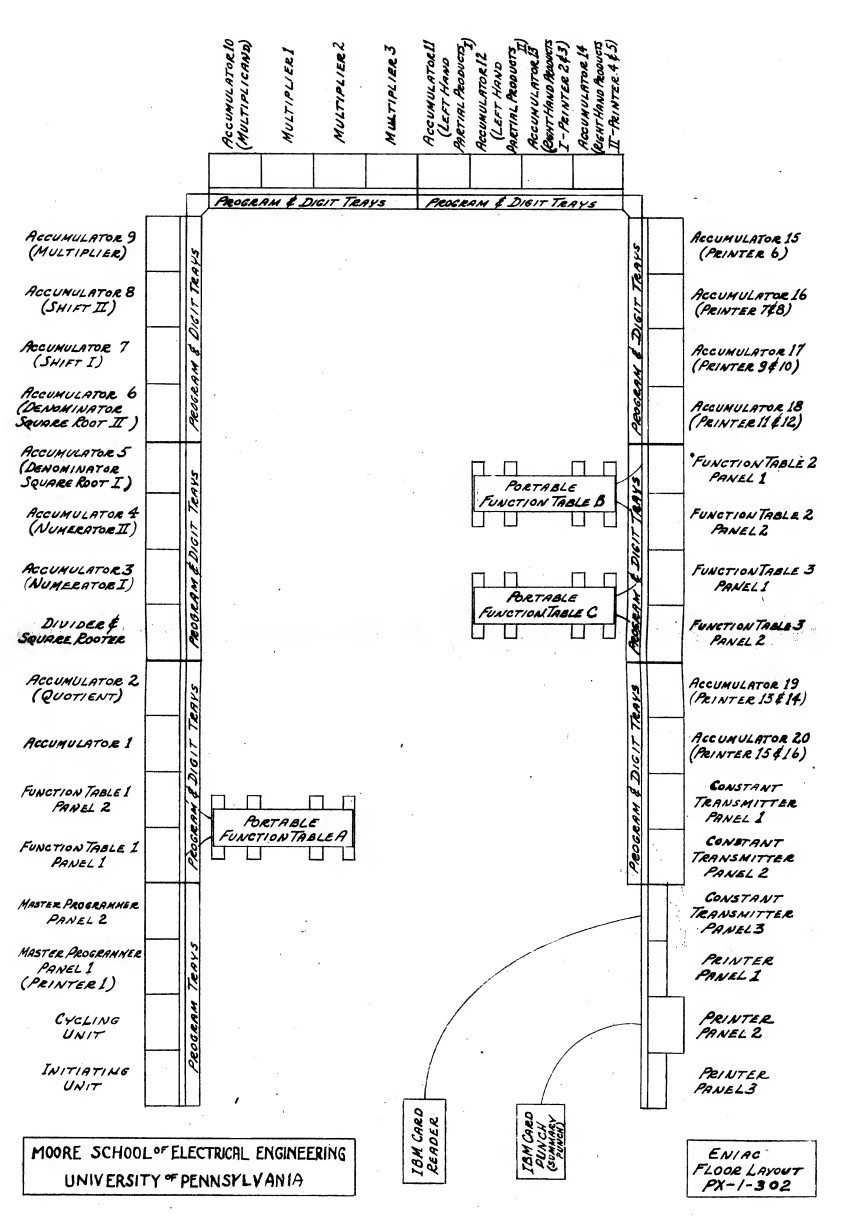 ACCUMULATOR 10
(MULTIPLICAND)
MULTIPLIER 1
MULTIPLIER 2
MULTIPLIER 3
ACCUMULATOR 11
(LEFT HAND
PARTIAL PRODUCTS I)
ACCUMULATOR 12
(LEFT HAND
PARTIAL PRODUCTS II)
ACCUMULATOR 13
(RIGHT HAND PRODUCTS
I-PRINTER 2&3)
ACCUMULATOR 14
(RIGHT HAND PRODUCTS
II-PRINTER 4&5)
PROGRAM & DIGIT TRAYS
PROGRAM & DIGIT TRAYS
ACCUMULATOR 9
(MULTIPLIER)
ACCUMULATOR 8
(SHIFT II)
ACCUMULATOR 7
(SHIFT I)
ACCUMULATOR 6
(DENOMINATOR
SQUARE ROOT II)
ACCUMULATOR 5
(DENOMINATOR
SQUARE ROOT I)
ACCUMULATOR 4
(NUMERATOR II)
ACCUMULATOR 3
(NUMERATOR I)
DIVIDER &
SQUARE ROOTER
ACCUMULATOR 2
(QUOTIENT)
ACCUMULATOR 1
FUNCTION TABLE 1
PANEL 2
FUNCTION TABLE 1
PANEL 1
MASTER PROGRAMMER
PANEL 2
MASTER PROGRAMMER
PANEL 1
(PRINTER 1)
CYCLING
UNIT
INITIATING
UNIT
PROGRAM & DIGIT TRAYS
PROGRAM & DIGIT TRAYS
PROGRAM & DIGIT TRAYS
PROGRAM TRAYS
PORTABLE
FUNCTION TABLE A
PORTABLE
FUNCTION TABLE B
PORTABLE
FUNCTION TABLE C
PROGRAM & DIGIT TRAYS
PROGRAM & DIGIT TRAYS
PROGRAM & DIGIT TRAYS
ACCUMULATOR 15
(PRINTER 6)
ACCUMULATOR 16
(PRINTER 7&8)
ACCUMULATOR 17
(PRINTER 9&10)
ACCUMULATOR 18
(PRINTER 11&12)
FUNCTION TABLE 2
PANEL 1
FUNCTION TABLE 2
PANEL 2
FUNCTION TABLE 3
PANEL 1
FUNCTION TABLE 3
PANEL 2
ACCUMULATOR 19
(PRINTER 13&14)
ACCUMULATOR 20
(PRINTER 15&16)
CONSTANT
TRANSMITTER
PANEL 1
CONSTANT
TRANSMITTER
PANEL 2
CONSTANT
TRANSMITTER
PANEL 3
PRINTER
PANEL 1
PRINTER
PANEL 2
PRINTER
PANEL 3
IBM CARD
READER
IBM CARD
PUNCH
(SUMMARY
PUNCH)
MOORE SCHOOL OF ELECTRICAL ENGINEERING
UNIVERSITY OF PENNSYLVANIA
ENIAC
FLOOR LAYOUT
PX-1-302